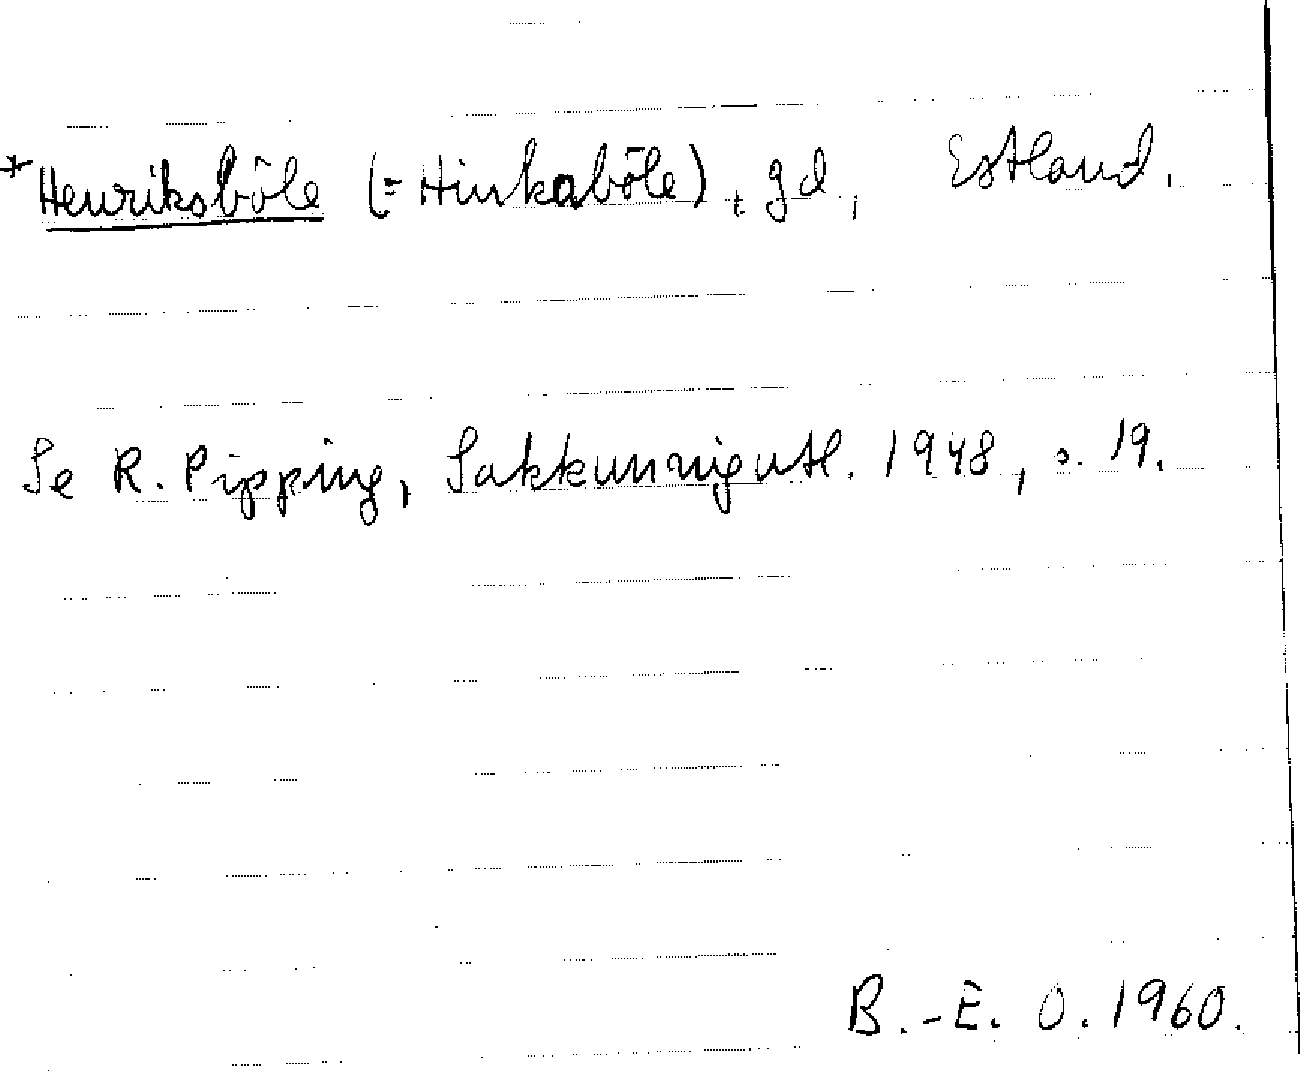 *Henriksböle (= Hinkaböle), gd, Estland.
Se R. Pipping, Sakkunnigutl. 1948, s. 19.
B.-E. O. 1960.